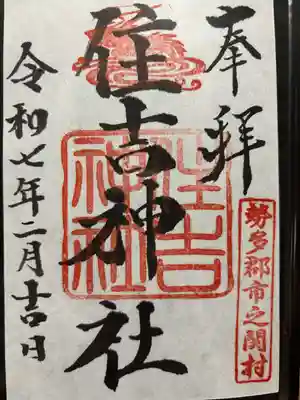 奉拝
勢多郡市之関村
住吉神社
住吉神社
令和七年二月吉日